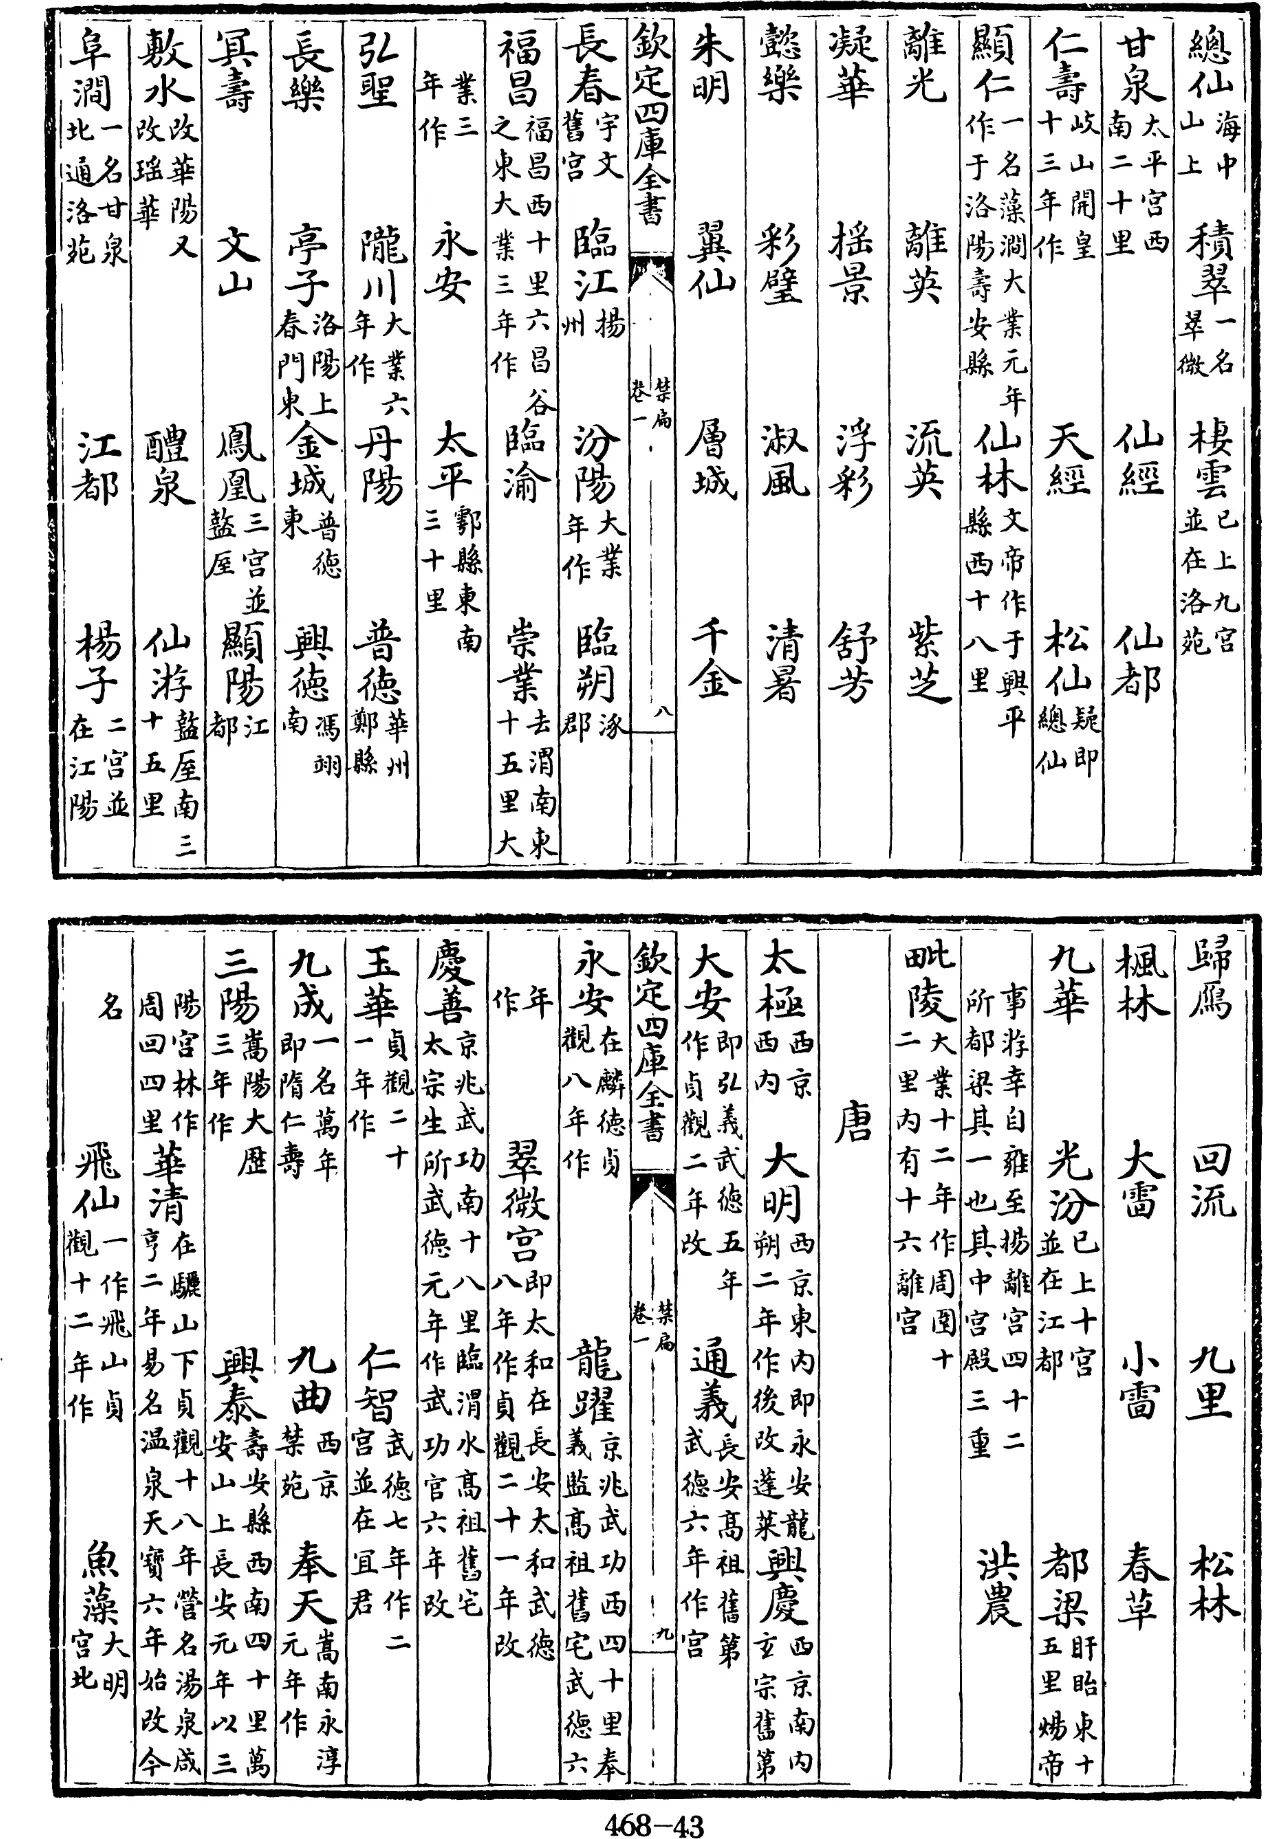 總仙海中山上 積翠一名翠微 棲雲已上九宮並在洛苑
甘泉太平宮西南二十里 仙經 仙都
仁壽岐山開皇十三年作 天經 松仙疑即總仙
顯仁一名藻澗大業元年作于洛陽壽安縣 仙林文帝作于興平縣西十八里
離光 離英 流英 紫芝
凝華 揺景 浮彩 舒芳
懿樂 彩璧 淑風 清暑
朱明 翼仙 層城 千金
欽定四庫全書 禁扁卷一 八
長春宇文舊宮 臨江揚州 汾陽大業年作 臨朔涿郡
福昌福昌西十里六昌谷之東大業三年作 臨渝 崇業去渭南東十五里大
業三年作 永安 太平鄠縣東南三十里
弘聖 隴川大業六年作 丹陽 普徳華州鄭縣
長樂 亭子洛陽上春門東 金城普徳東 興徳馮翊南
㝠壽 文山 鳳凰三宮並盩厔 顯陽江都
敷水改華陽又改瑶華 醴泉 仙游盩厔南三十五里
阜澗一名甘泉北通洛苑 江都 楊子二宮並在江陽
歸鴈 回流 九里 松林
楓林 大雷 小雷 春草
九華 光汾已上十宮並在江都 都梁盱眙東十五里煬帝
事游幸自雍至揚離宮四十二所都梁其一也其中宮殿三重 洪農
毗陵大業十二年作周圍十二里内有十六離宮
唐
太極西京西内 大明西京東内即永安龍朔二年作後改蓬萊 興慶西京南内玄宗舊第
大安即弘義武徳五年作貞觀二年改 通義長安髙祖舊第武徳六年作宮
欽定四庫全書 禁扁卷一 九
永安在麟徳貞觀八年作 龍躍京兆武功西四十里奉義監髙祖舊宅武徳六
年作 翠微宮即太和在長安太和武徳八年作貞觀二十一年改
慶善京兆武功南十八里臨渭水髙祖舊宅太宗生所武徳元年作武功宮六年改
玉華貞觀二十一年作 仁智武徳七年作二宮並在宜君
九成一名萬年即隋仁壽 九曲西京禁苑 奉天嵩南永淳元年作
三陽嵩陽大歷三年作 興泰壽安縣西南四十里萬安山上長安元年以三
陽宮林作周回四里 華清在驪山下貞觀十八年營名湯泉咸亨二年易名温泉天寶六年始改今
名 飛仙一作飛山貞觀十二年作 魚藻大明宮北
468-43